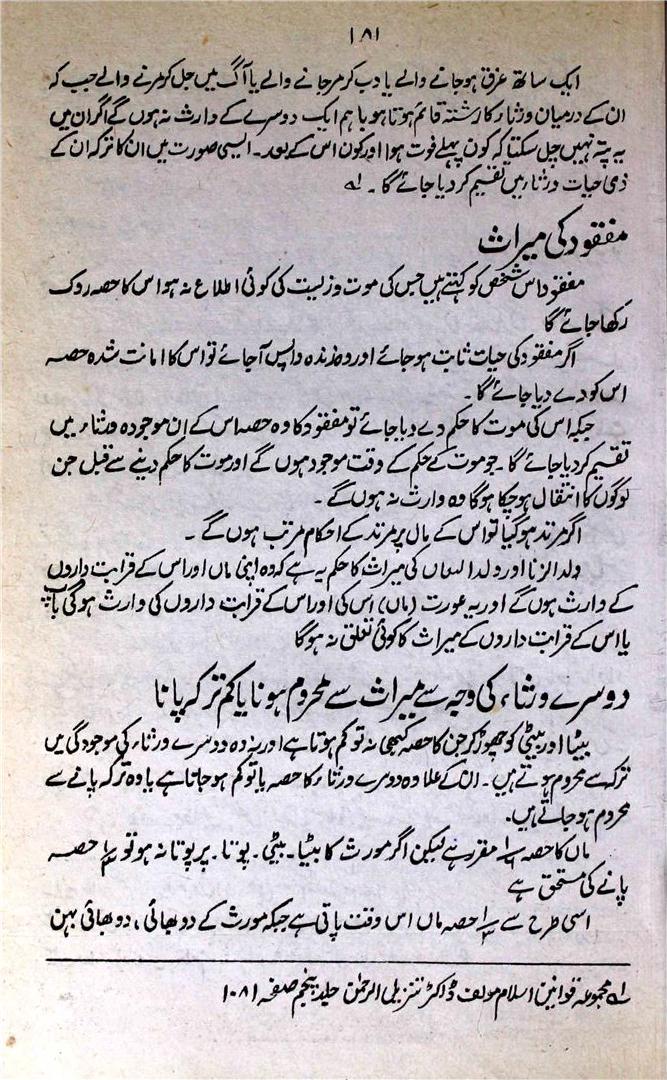 ۱۸۱
ایک ساتھ غرق ہوجانے والے یا دب کر مرجانے والے یا آگ میں جل کر مرنے والے جب کہ
ان کے درمیان ورثاء کا رشتہ قائم ہوتا ہو باہم ایک دوسرے کے وارث نہ ہوں گے اگر ان میں
یہ پتہ نہیں چل سکتا کہ کون پہلے فوت ہوا اور کون اس کے بعد۔ ایسی صورت میں ان کا ترکہ ان کے
ذی حیات ورثاء میں تقسیم کردیا جائے گا۔ لہ
مفقود کی میراث
مفقود اس شخص کو کہتے ہیں جس کی موت و زلیت کی کوئی اطلاع نہ ہو اس کا حصہ روک
رکھا جائے گا
اگر مفقود کی حیات ثابت ہوجائے اور وہ زندہ واپس آجائے تو اس کا امانت شدہ حصہ
اس کو دے دیا جائے گا۔
جبکہ اس کی موت کا حکم دے دیا جائے تو مفقود کا وہ حصہ اس کے ان موجودہ ورثاء میں
تقسیم کردیا جائے گا۔ جو موت کے حکم کے وقت موجود ہوں گے اور موت کا حکم دینے سے قبل جن
لوگوں کا انتقال ہوچکا ہوگا وہ وارث نہ ہوں گے۔
اگر مرتد ہوگیا تو اس کے مال پر مرتد کے احکام مرتب ہوں گے۔
ولد الزنا اور ولد اللعاں کی میراث کا حکم یہ ہے کہ وہ اپنی ماں اور اس کے قرابت داروں
کے وارث ہوں گے اور یہ عورت (ماں) اس کی اور اس کے قرابت داروں کی وارث ہوگی باپ
یا اس کے قرابت داروں کے میراث کا کوئی تعلق نہ ہوگا
دوسرے ورثاء کی وجہ سے میراث سے محروم ہونا یا کم ترکہ پانا
بیٹا اور بیٹی کو چھوڑ کر جن کا حصہ کبھی نہ تو کم ہوتا ہے اور نہ وہ دوسرے ورثاء کی موجودگی میں
ترکہ سے محروم ہوتے ہیں۔ ان کے علاوہ دوسرے ورثاء کا حصہ یا تو کم ہوجاتا ہے یا وہ ترکہ پانے سے
محروم ہوجاتے ہیں۔
ماں کا حصہ مقرر ہے لیکن اگر مورث کا بیٹا۔ بیٹی۔ پوتا۔ پرپوتا نہ ہو تو حصہ
پانے کی مستحق ہے
اسی طرح سے حصہ ماں اس وقت پاتی ہے جبکہ مورث کے دو بھائی، دو بھائی بہن
لہ مجموعہ قوانین اسلام مولف ڈاکٹر تنزیل الرحمٰن جلد پنجم صفحہ ۱۰۸۱